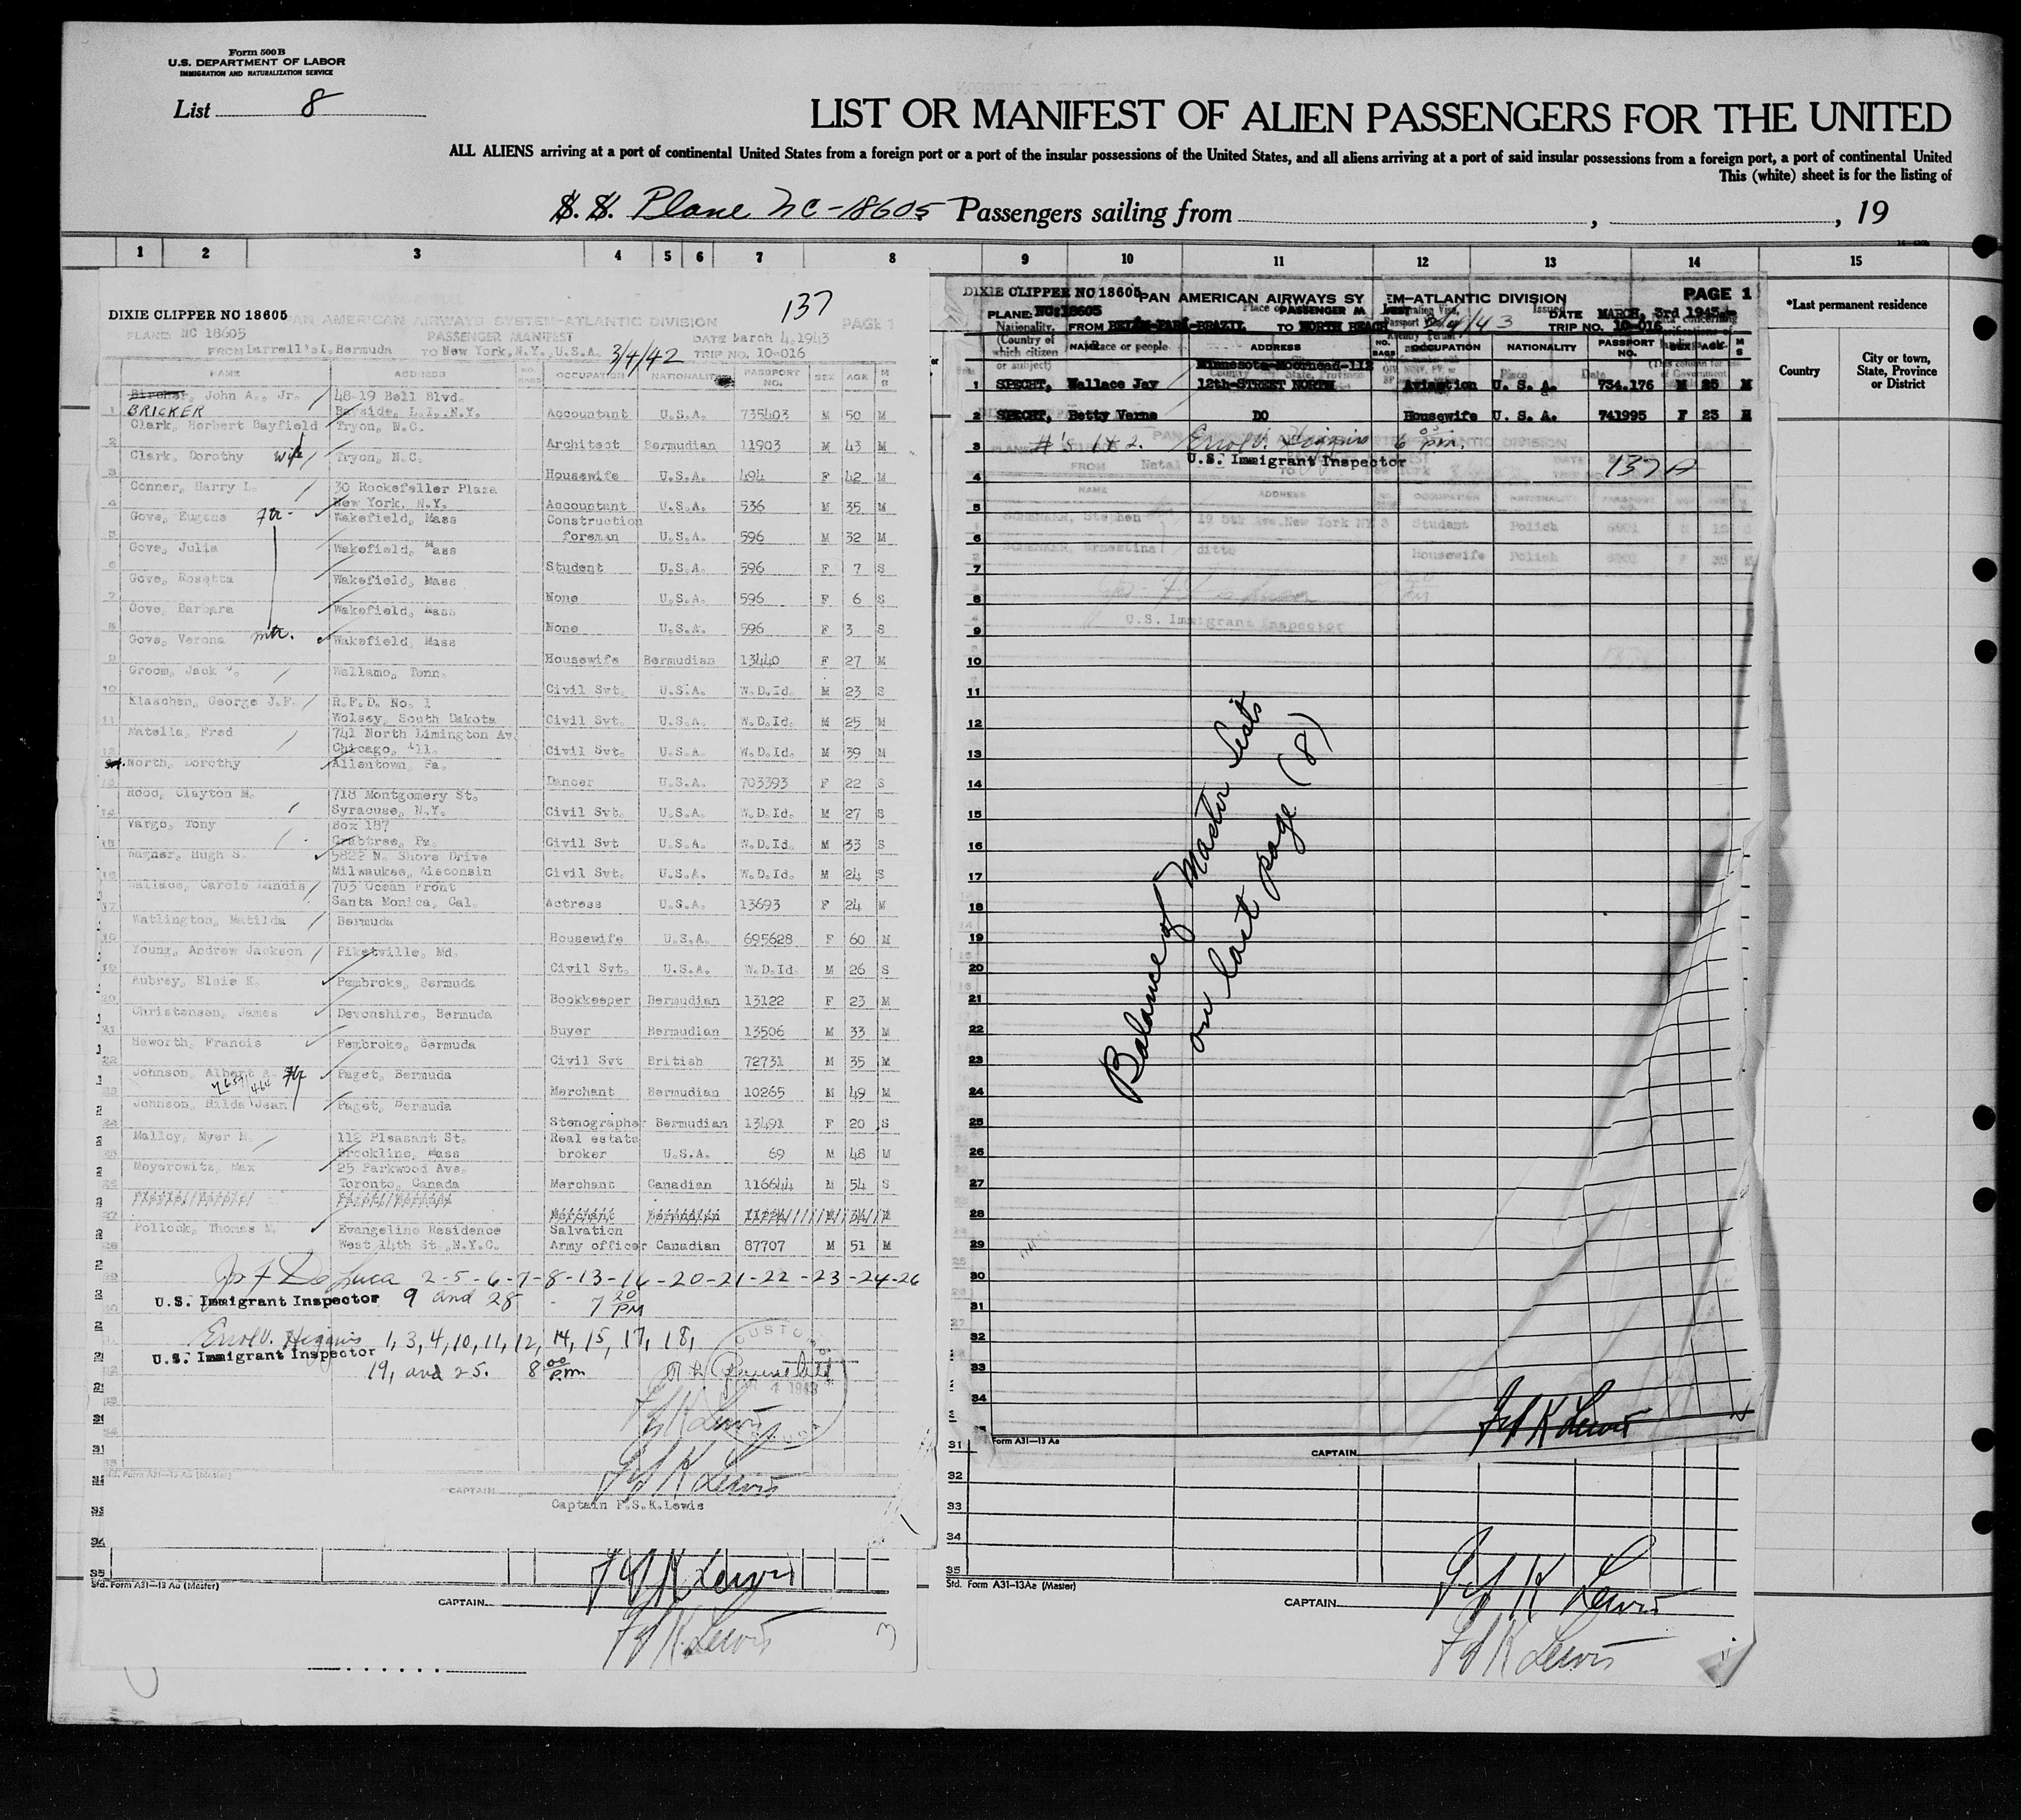 Form 500B
U.S. DEPARTMENT OF LABOR
IMMIGRATION AND NATURALIZATION SERVICE
List 8
LIST OR MANIFEST OF ALIEN PASSENGERS FOR THE UNITED
ALL ALIENS arriving at a port of continental United States from a foreign port or a port of the insular possessions of the United States, and all aliens arriving at a port of said insular possessions from a foreign port, a port of continental United
This (white) sheet is for the listing of
S. S. Plane NC-18605 Passengers sailing from , , 19
1 2 3 4 5 6 7 8 9 10 11 12 13 14 15
137
DIXIE CLIPPER NC 18605
PAN AMERICAN AIRWAYS SYSTEM-ATLANTIC DIVISION PAGE 1
PLANE: NC 18605 PASSENGER MANIFEST DATE March 4, 1943
FROM Darrell's I. Bermuda TO New York, N.Y., U.S.A. 3/4/42 TRIP NO. 10-016
NAME ADDRESS NO. BAGS OCCUPATION NATIONALITY PASSPORT NO. SEX AGE M S
Bircher, John A., Jr. 48-19 Bell Blvd.
1 BRICKER Bayside, L.I., N.Y. Accountant U.S.A. 735403 M 50 M
Clark, Herbert Bayfield Tryon, N.C.
2 Architect Bermudian 11903 M 43 M
Clark, Dorothy wife Tryon, N.C.
3 Housewife U.S.A. 494 F 42 M
Conner, Harry L. 30 Rockefeller Plaza
4 New York, N.Y. Accountant U.S.A. 536 M 35 M
Gove, Eugene Ftr. Wakefield, Mass Construction
5 foreman U.S.A. 596 M 32 M
Gove, Julia Wakefield, Mass
6 Student U.S.A. 596 F 7 S
Gove, Rosetta Wakefield, Mass
7 None U.S.A. 596 F 6 S
Gove, Barbara Wakefield, Mass
8 None U.S.A. 596 F 3 S
Gove, Verona mtr. Wakefield, Mass
9 Housewife Bermudian 13440 F 27 M
Groom, Jack Wallamo, Tenn.
10 Civil Svt. U.S.A. W.D.Id. M 23 S
Klaschen, George J.F. R.F.D. No. 1
11 Wolsey, South Dakota Civil Svt. U.S.A. W.D.Id. M 25 M
Matella, Fred 741 North Limington Av.
12 Chicago, Ill. Civil Svt. U.S.A. W.D.Id. M 39 M
North, Dorothy Allentown, Pa.
13 Dancer U.S.A. 703393 F 22 S
Rood, Clayton M. 718 Montgomery St.
14 Syracuse, N.Y. Civil Svt. U.S.A. W.D.Id. M 27 S
Vargo, Tony Box 187
15 Crabtree, Pa. Civil Svt U.S.A. W.D.Id. M 33 S
Wagner, Hugh S. 5822 N. Shore Drive
16 Milwaukee, Wisconsin Civil Svt. U.S.A. W.D.Id. M 24 S
Wallace, Carole Landis 703 Ocean Front
17 Santa Monica, Cal. Actress U.S.A. 13693 F 24 M
Watlington, Matilda Bermuda
18 Housewife U.S.A. 695628 F 60 M
Young, Andrew Jackson Piketville, Md.
19 Civil Svt. U.S.A. W.D.Id. M 26 S
Aubrey, Elsie K. Pembroke, Bermuda
20 Bookkeeper Bermudian 13122 F 23 M
Christensen, James Devonshire, Bermuda
21 Buyer Bermudian 13506 M 33 M
Haworth, Francis Pembroke, Bermuda
22 Civil Svt British 72731 M 35 M
Johnson, Albert A. Ftr Paget, Bermuda
23 Merchant Bermudian 10265 M 49 M
Johnson, Hilda Jean Paget, Bermuda
24 Stenographer Bermudian 13491 F 20 S
Malloy, Myer H. 112 Pleasant St. Real estate
25 Brookline, Mass broker U.S.A. 69 M 48 M
Meyerowitz, Max 25 Parkwood Ave.
26 Toronto, Canada Merchant Canadian 116644 M 54 S
27
Pollock, Thomas M. Evangeline Residence Salvation
28 West 14th St., N.Y.C. Army officer Canadian 87707 M 51 M
Jos F De Luca 2-5-6-7-8-13-16-20-21-22-23-24-26
U.S. Immigrant Inspector 9 and 28 - 7 20 PM
Errol V. Higgins 1, 3, 4, 10, 11, 12, 14, 15, 17, 18,
U.S. Immigrant Inspector
19, and 25. 8 00 pm
CUSTOMS
4 1943
F S K Lewis
F S K Lewis
Std. Form A31-13 Aa (Master)
CAPTAIN
Captain F.S.K.Lewis
F S K Lewis
Std. Form A31-13 Aa (Master)
CAPTAIN
F S K Lewis
3
DIXIE CLIPPER NC 18605 PAN AMERICAN AIRWAYS SYSTEM-ATLANTIC DIVISION PAGE 1
PLANE: NC 18605 PASSENGER M DATE MARCH, 3rd 1943
FROM BELEM-PARA-BRAZIL TO NORTH BEACH TRIP NO. 10-016
Nationality, (Country of which citizen or subject)
NAME ADDRESS NO. BAGS OCCUPATION NATIONALITY PASSPORT NO. SEX AGE M S
Minnesota-Moorhead-112
1 SPECHT, Wallace Jay 12th-STREET NORTH Aviation U. S. A. 734.176 M 25 M
2 SPECHT, Betty Verne DO Housewife U. S. A. 741995 F 23 M
3 #'s 1 & 2. Errol V. Higgins 6 05 pm.
U.S. Immigrant Inspector 137 A
FROM Natal
NAME ADDRESS OCCUPATION NATIONALITY
SCHENKER, Stephen 19 5th Ave. New York NY 3 Student Polish
SCHENKER, Ernestina ditto Housewife Polish
U.S. Immigrant Inspector
4
5
6
7
8
9
10
11
12
13
14
15
16
17
18
19
20
21
22
23
24
25
26
27
28
29
30
31
32
33
34
Balance of Master Lists
on last page (8)
Form A31-13 Aa
CAPTAIN F S K Lewis
31
32
33
34
35
Std. Form A31-13Aa (Master)
CAPTAIN F S K Lewis
F S K Lewis
*Last permanent residence
Country
City or town, State, Province or District